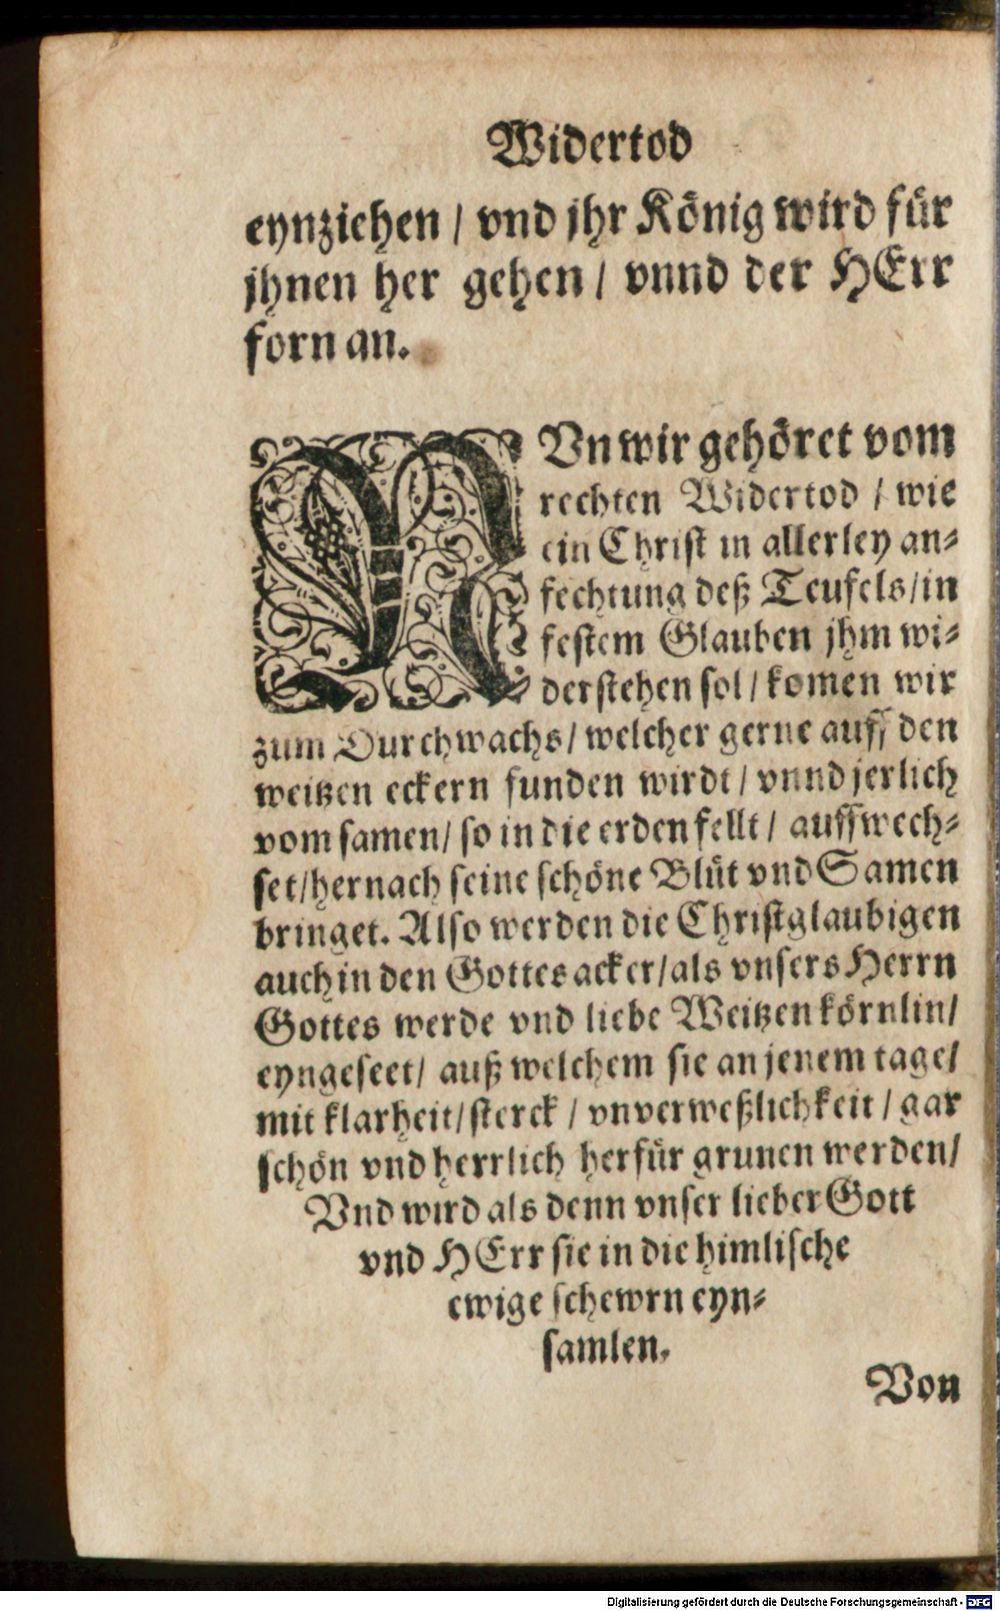 Widertod
eynziehen / vnd jhr König wird für
jhnen her gehen / vnnd der HErr
forn an.
NVn wir gehöret vom
rechten Widertod / wie
ein Christ in allerley an-
fechtung deß Teufels / in
festem Glauben jhm wi-
derstehen sol / komen wir
zum Durchwachs / welcher gerne auff den
weitzen eckern funden wirdt / vnnd jerlich
vom samen / so in die erden fellt / auffwech-
set / hernach seine schöne Blüt vnd Samen
bringet. Also werden die Christglaubigen
auch in den Gottesacker / als vnsers Herrn
Gottes werde vnd liebe Weitzenkörnlin /
eyngeseet / auß welchem sie an jenem tage /
mit klarheit / sterck / vnverweßlichkeit / gar
schön vnd herrlich herfür grunen werden /
Vnd wird als denn vnser lieber Gott
vnd HErr sie in die himlische
ewige schewrn eyn-
samlen.
Von
Digitalisierung gefördert durch die Deutsche Forschungsgemeinschaft - DFG